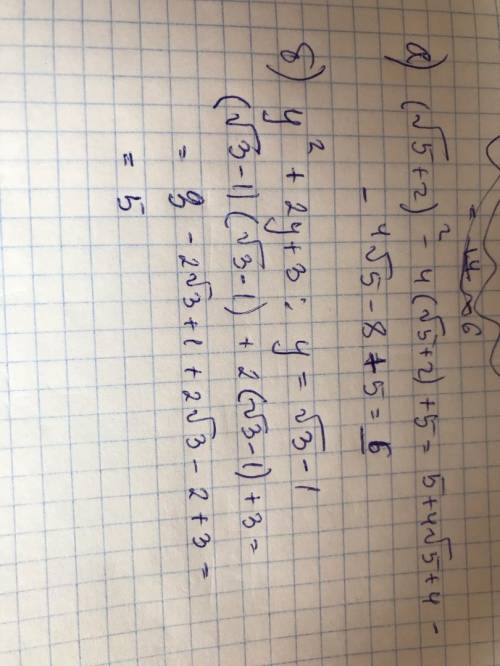 = 14 ~ 6
а) (√5+2)² - 4(√5+2)+5 = 5+4√5+4 -
- 4√5 - 8 + 5 = 6
б) y² + 2y+3; y = √3 - 1
(√3-1)(√3-1) + 2(√3-1)+3 =
= 3 - 2√3+1+2√3 - 2 +3 =
= 5